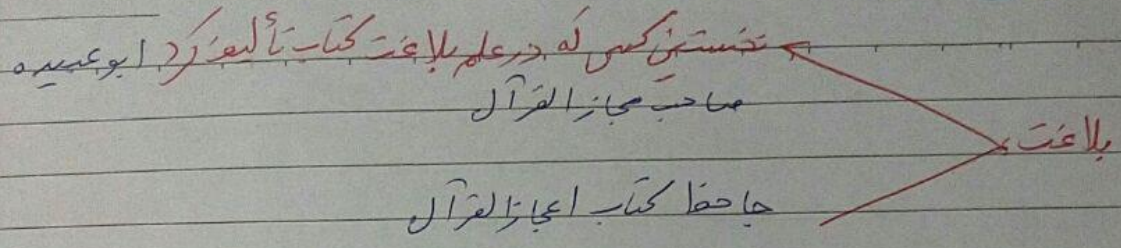 نخستین کسی که در علم بلاغت کتاب تألیف کرد ابوعبیده
صاحب مجاز القرآن
بلاغت
جاحظ کتاب اعجاز القرآن